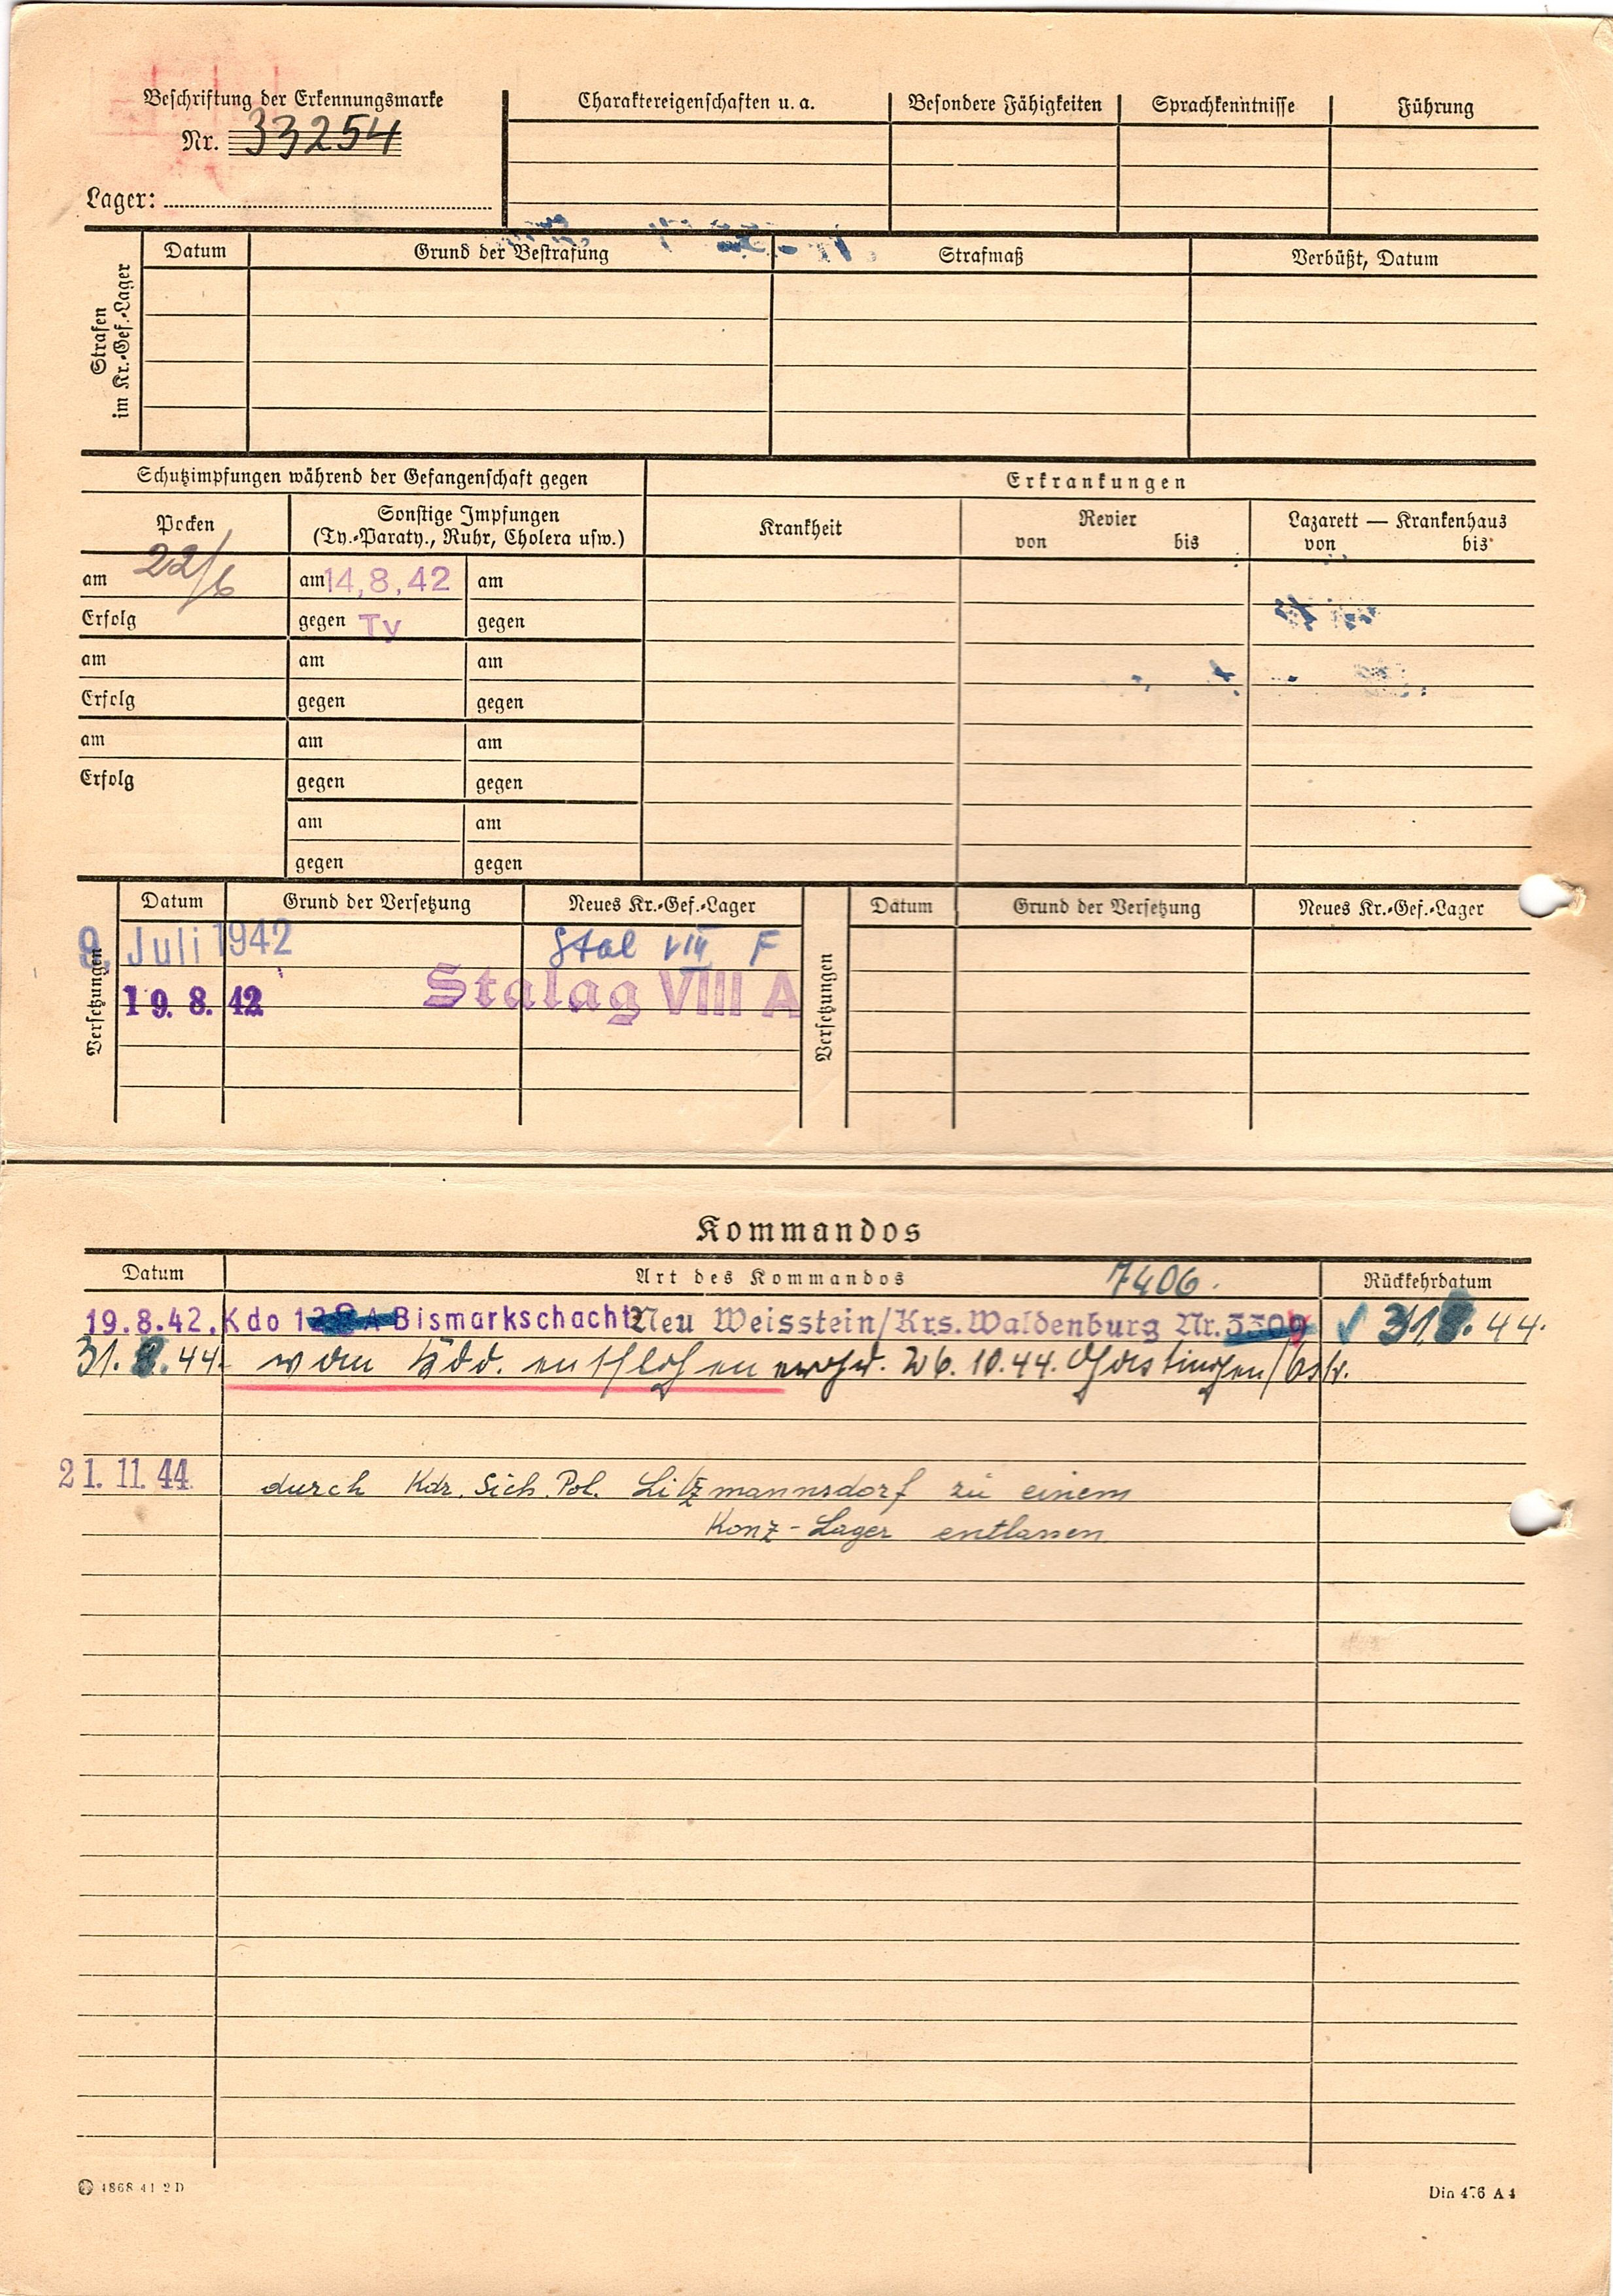 Beschriftung der Erkennungsmarke
Nr. 33254
Lager:
Charaktereigenschaften u. a.
Besondere Fähigkeiten
Sprachkenntnisse
Führung
Strafen im Kr.-Gef.-Lager
Datum
Grund der Bestrafung
Strafmaß
Verbüßt, Datum
Schutzimpfungen während der Gefangenschaft gegen
Erkrankungen
Pocken
Sonstige Impfungen
(Ty.-Paraty., Ruhr, Cholera usw.)
Krankheit
Revier
von bis
Lazarett — Krankenhaus
von bis
am 22/6 am 14,8,42 am
Erfolg gegen Ty gegen
am am am
Erfolg gegen gegen
am am am
Erfolg gegen gegen
am am
gegen gegen
Versetzungen
Datum Grund der Versetzung Neues Kr.-Gef.-Lager
9. Juli 1942 Stal VIII F
19. 8. 42 Stalag VIII A
Versetzungen
Datum Grund der Versetzung Neues Kr.-Gef.-Lager
Kommandos
Datum Art des Kommandos 7406. Rückkehrdatum
19.8.42. Kdo Bismarkschacht Neu Weisstein/Krs. Waldenburg Nr. 31 8. 44.
31. 8. 44. vom Kdo. entflohen 26. 10. 44.
21. 11. 44 durch Kdr. Sich. Pol. Litzmannsdorf zu einem
Konz-Lager entlassen
4868 41 2 D
Din 476 A 4